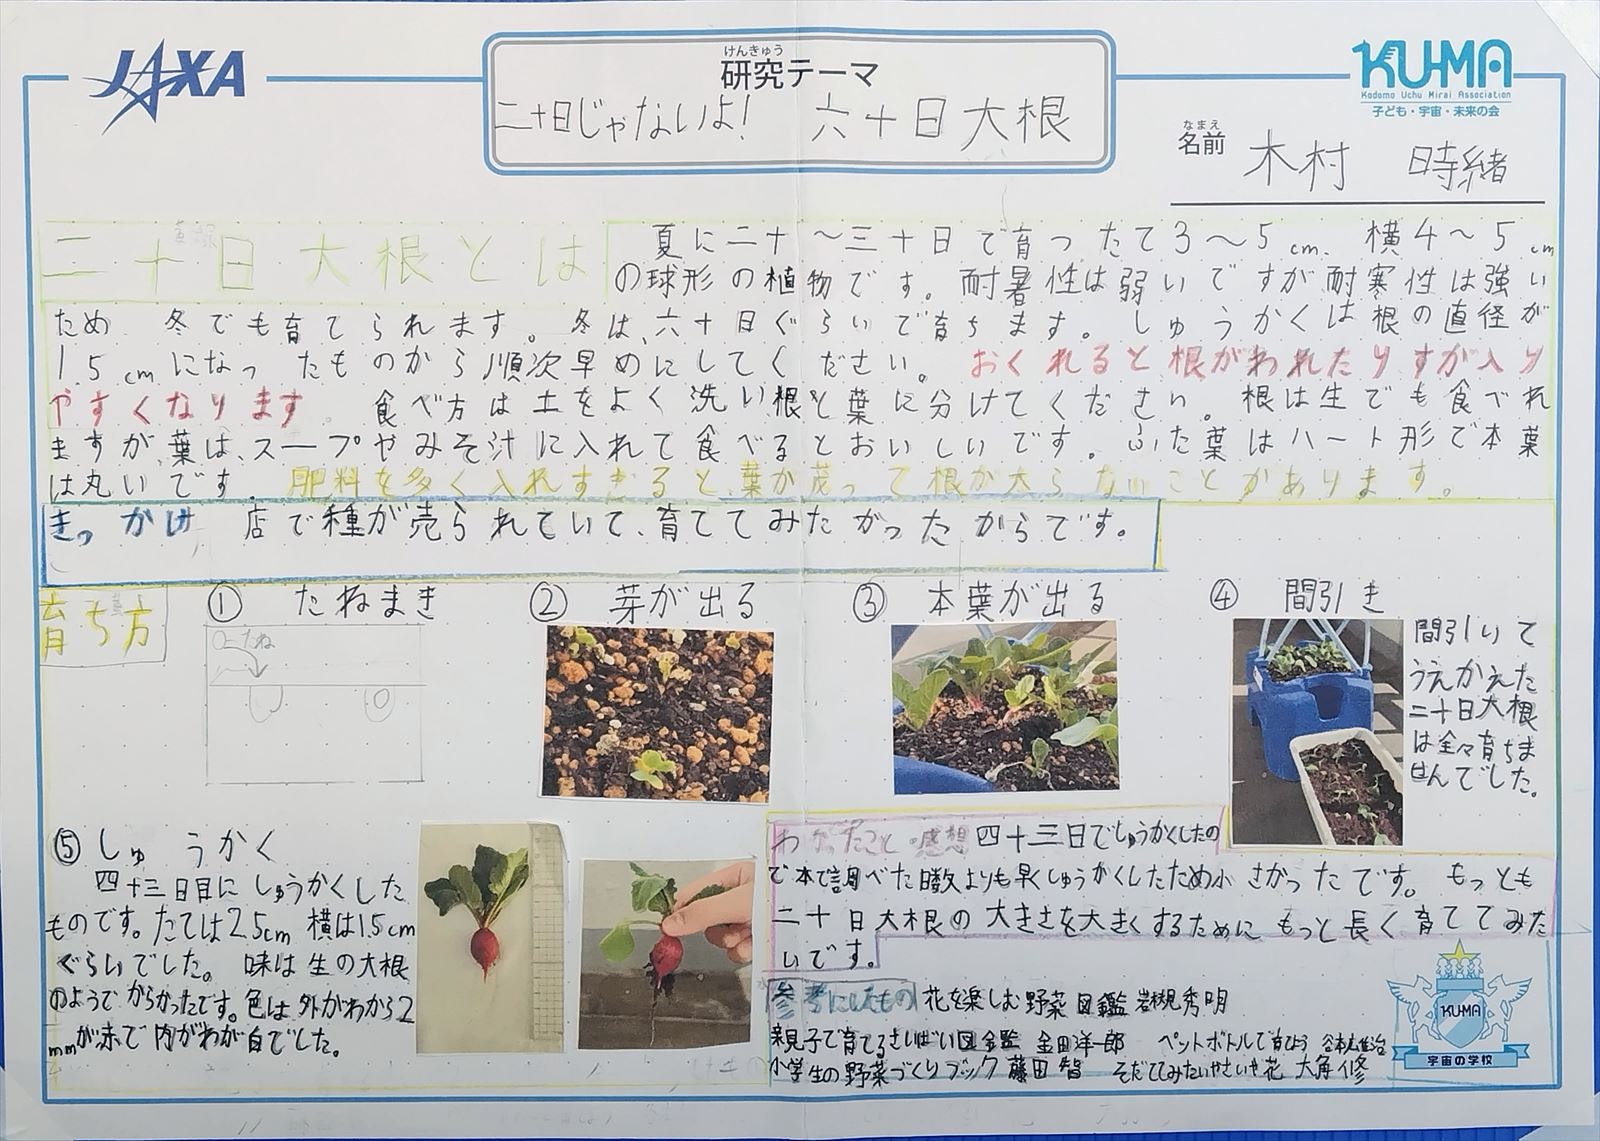 JAXA
けんきゅう
研究テーマ
二十日じゃないよ! 六十日大根
KUMA
Kodomo Uchu Mirai Association
子ども・宇宙・未来の会
なまえ
名前 木村 時緒
二十日大根とは
夏に二十～三十日で育つ たて3～5cm、横4～5cm
の球形の植物です。耐暑性は弱いですが耐寒性は強い
ため 冬でも育てられます。冬は、六十日ぐらいで育ちます。しゅうかくは根の直径が
1.5cmになったものから順次早めにしてください。おくれると根がわれたりすが入り
やすくなります。食べ方は土をよく洗い根と葉に分けてください。根は生でも食べれ
ますが、葉は、スープやみそ汁に入れて食べるとおいしいです。ふた葉はハート形で本葉
は丸いです。肥料を多く入れすぎると、葉が茂って根が太らないことがあります。
きっかけ 店で種が売られていて、育ててみたかったからです。
育ち方
① たねまき
たね
② 芽が出る
③ 本葉が出る
④ 間引き
間引いて
うえかえた
二十日大根
は全々育ちま
せんでした。
⑤ しゅうかく
四十三日目にしゅうかくした
ものです。たては2.5cm 横は1.5cm
ぐらいでした。味は生の大根
のようでからかったです。色は外がわから2
mmが赤で内がわが白でした。
わかったこと・感想 四十三日でしゅうかくしたの
で本で調べた日数よりも早くしゅうかくしたため小さかったです。もっとも
二十日大根の大きさを大きくするためにもっと長く育ててみた
いです。
参考にしたもの 花を楽しむ野菜図鑑 岩槻秀明
親子で育てるさいばい図鑑 金田洋一郎 ペットボトルで育てよう
小学生の野菜づくりブック 藤田智 そだててみたいやさいや花 大角修
KUMA
宇宙の学校